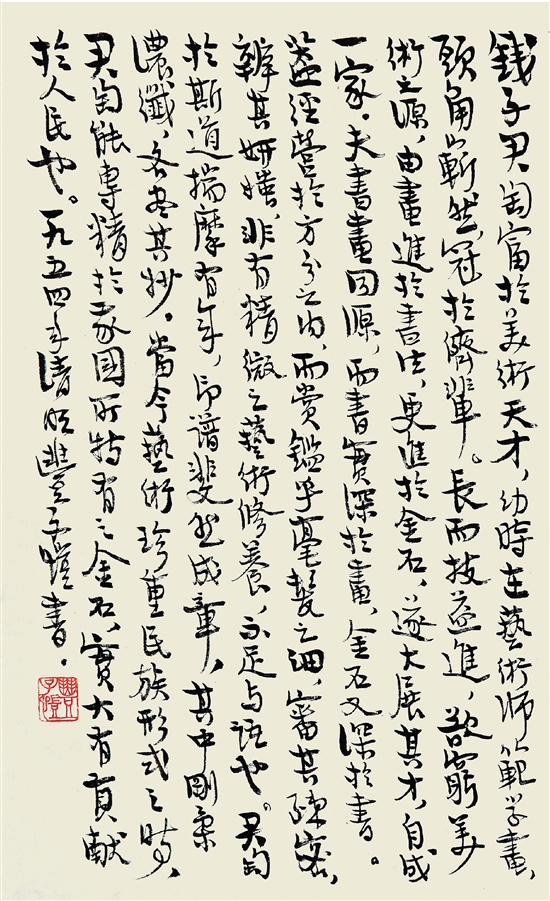 钱子君匋富於美術天才，幼時在藝術师範学畫，
頭角嶄然，冠於儕輩。長而技益進，欲窮美
術之源，由畫進於書法，更進於金石，遂大展其才，自成
一家。夫書畫同源，而書實深於畫，金石又深於書。
蓋經營於方寸之内，而赏鑑乎毫髮之細，審其疎密，
辨其妍媸，非有精微之藝術修養，不足与語也。君匋
於斯道揣摩有年，印谱斐然成章，其中剛柔
濃纖，各盡其妙。當今藝術珍重民族形式之時，
君匋能專精於我國所特有之金石，實大有貢献
於人民也。一九五四年清明豐子愷書。
豐子愷